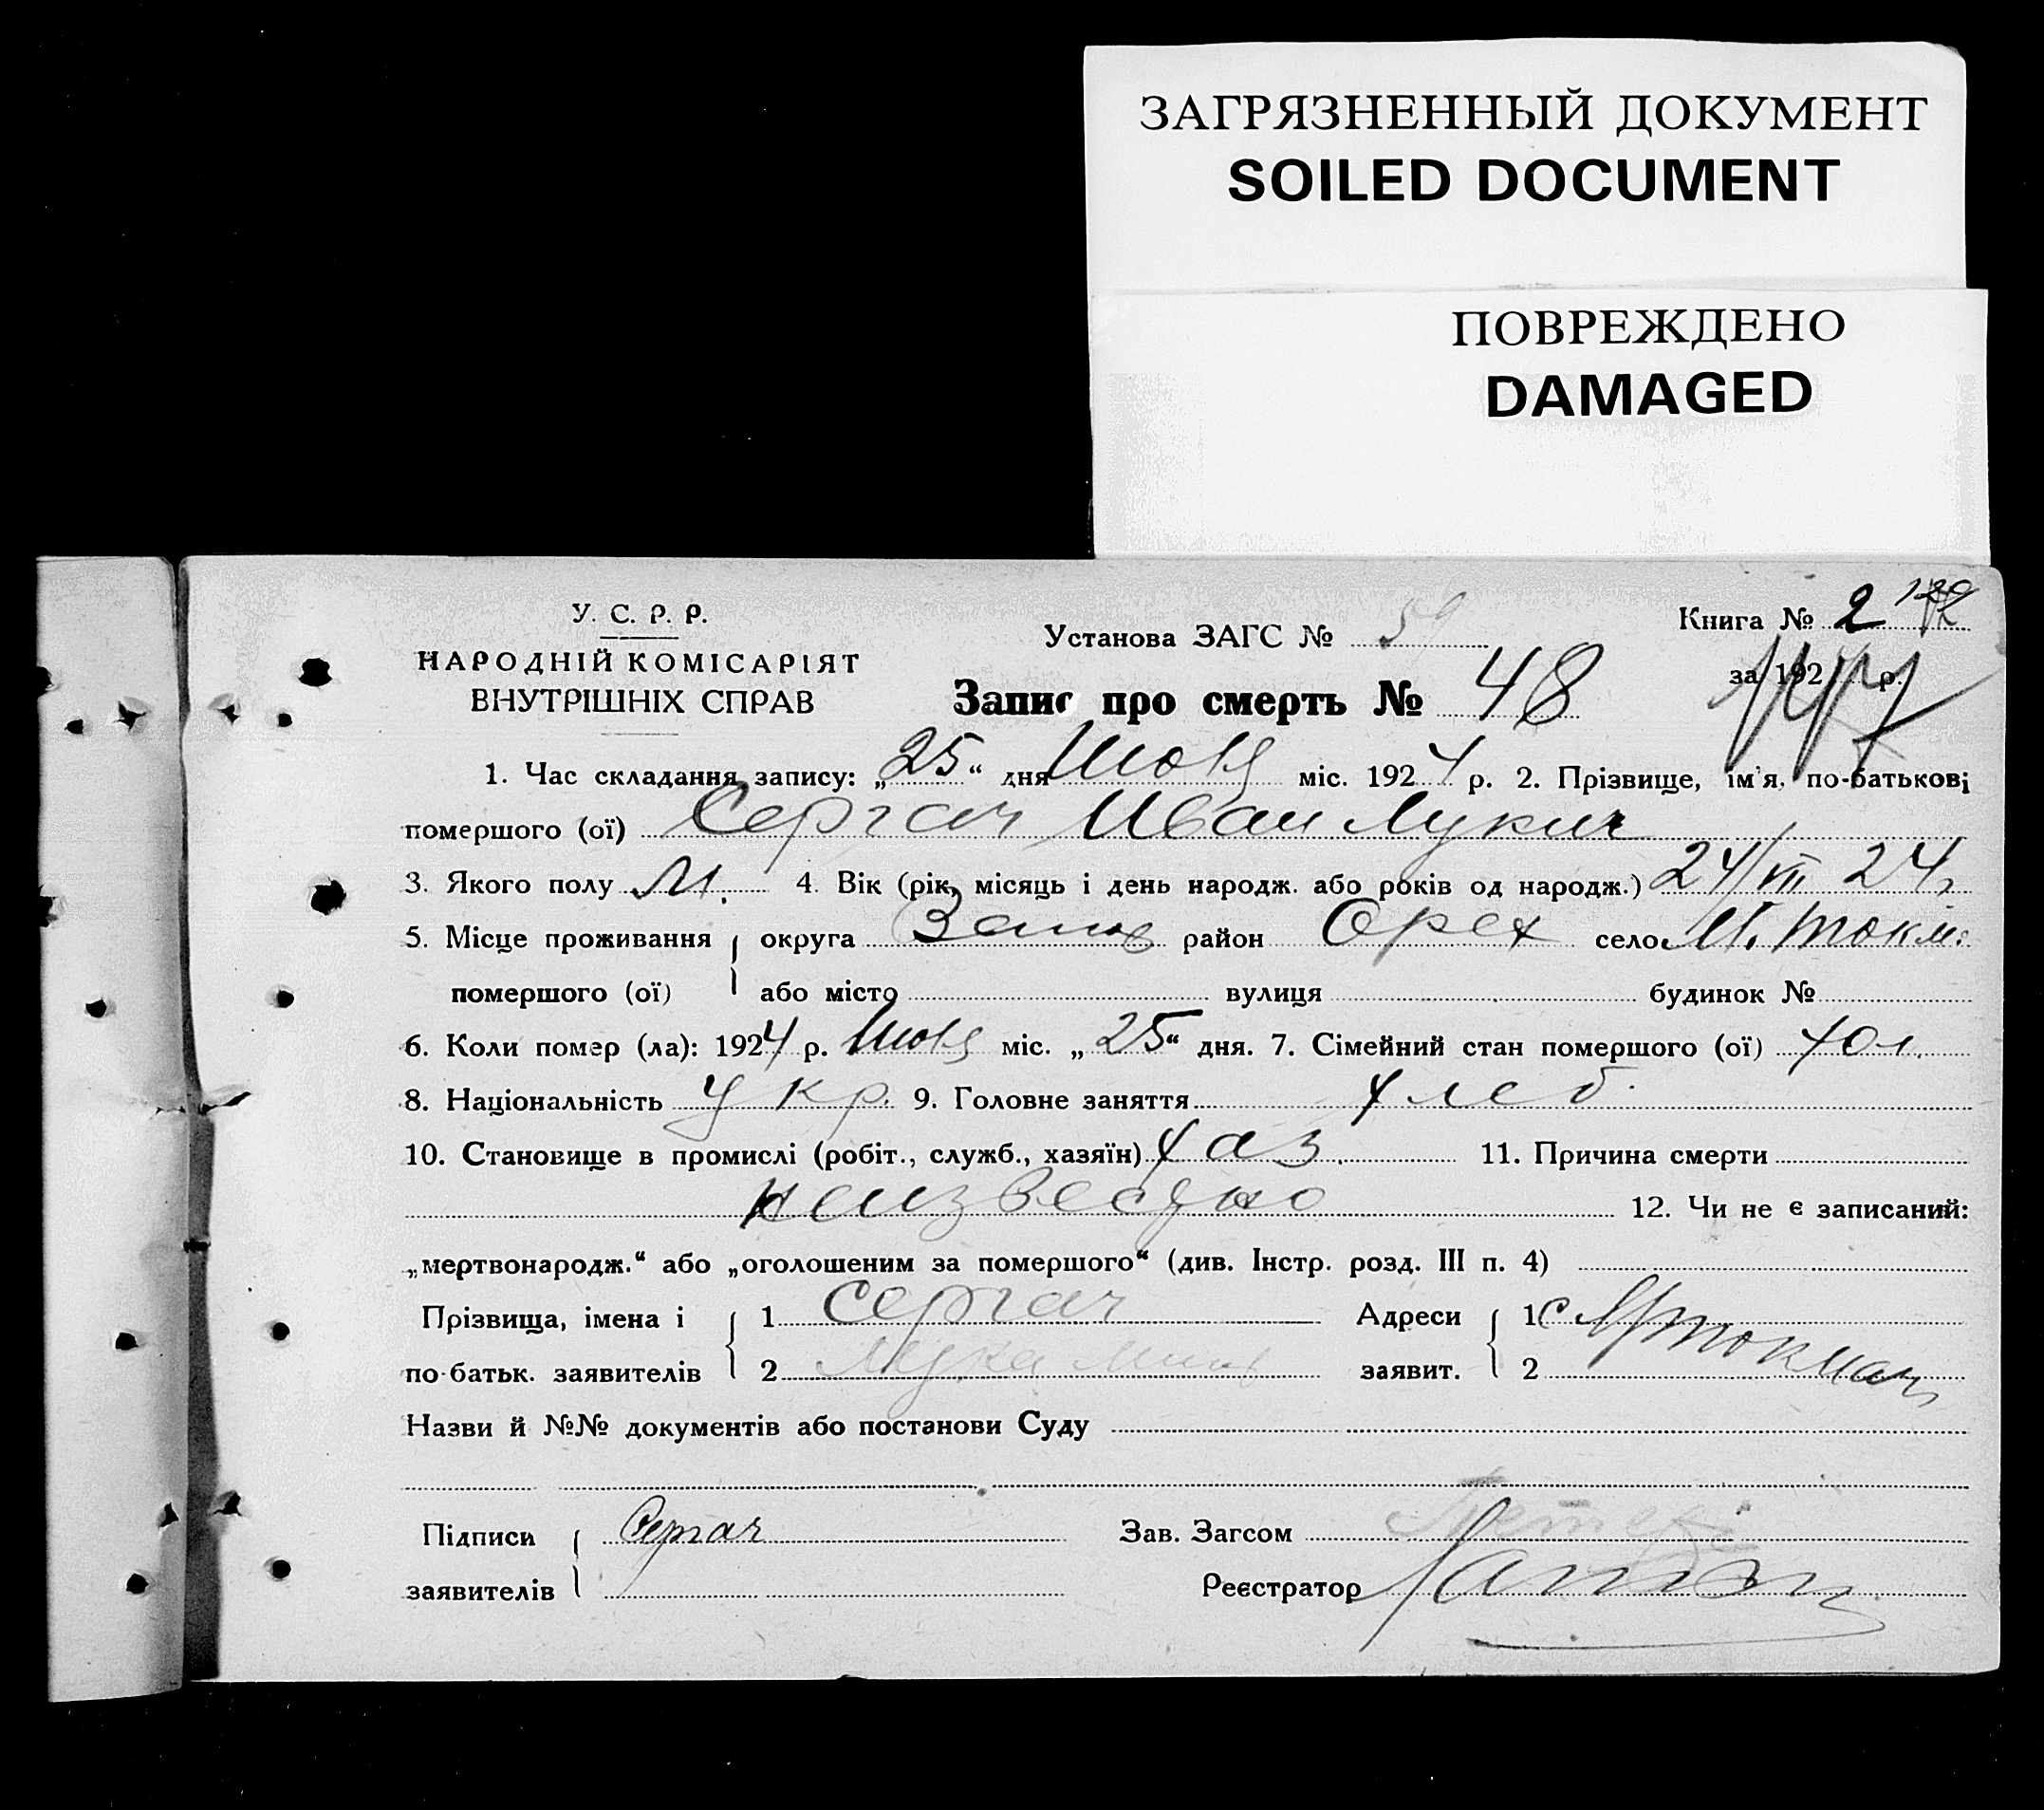 ЗАГРЯЗНЕННЫЙ ДОКУМЕНТ
SOILED DOCUMENT
ПОВРЕЖДЕНО
DAMAGED
У. С. Р. Р.
НАРОДНІЙ КОМІСАРІЯТ
ВНУТРІШНІХ СПРАВ
Установа ЗАГС № 59
Книга № 2
за 192 р.
Запис про смерть № 48
1. Час складання запису: „25“ дня Июля міс. 1924 р. 2. Прізвище, ім'я, по-батькові
помершого (ої) Сергач Иван Лукич
3. Якого полу М. 4. Вік (рік, місяць і день народж. або років од народж.) 24/VII 24 г
5. Місце проживання округа Запор район Орех село М. Токм.
помершого (ої) або місто вулиця будинок №
6. Коли помер (ла): 1924 р. Июля міс. „25“ дня. 7. Сімейний стан помершого (ої) хол.
8. Національність Укр. 9. Головне заняття хлеб.
10. Становище в промислі (робіт., служб., хазяїн) хаз. 11. Причина смерти
неизвестно 12. Чи не є записаний:
„мертвонародж.“ або „оголошеним за помершого“ (див. Інстр. розд. III п. 4)
Прізвища, імена і 1 Сергач Адреси 1 с
по-батьк. заявителів 2 Лука заявит. 2
Назви й №№ документів або постанови Суду
Підписи Сергач Зав. Загсом
заявителів Реєстратор